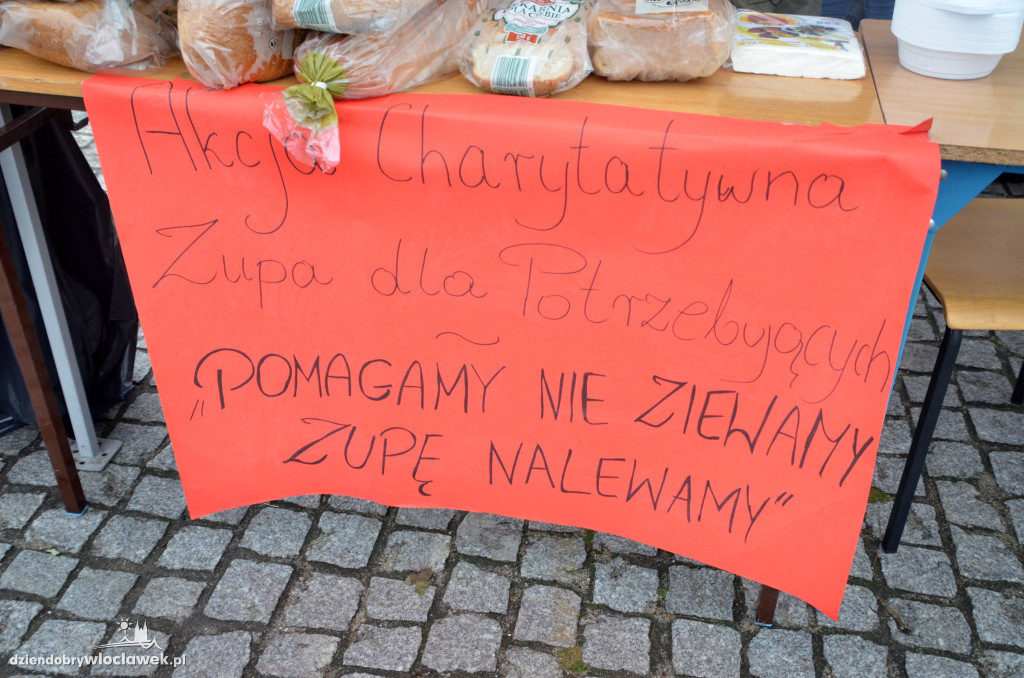 Akcja Charytatywna
Zupa dla Potrzebujących
~
„POMAGAMY NIE ZIEWAMY
ZUPĘ NALEWAMY”
dziendobrywloclawek.pl